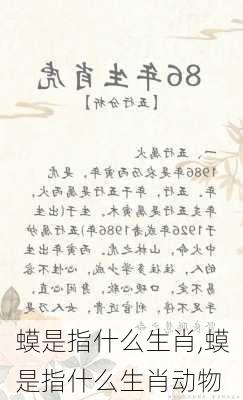 86年生肖虎
【五行分析】
一、五行属火
1986年是农历丙寅年，是虎
年。五行，年干五行是属丙火，
年支五行是属寅木。生于(出生
于1926年或者1986年)五行属炉
中火命，山林之虎。丙寅年出生
的人，往往多学少成，心性不
定，口硬心软，心直，
手足不停，利官近贵，女人乃是
蟆是指什么生肖,蟆
是指什么生肖动物